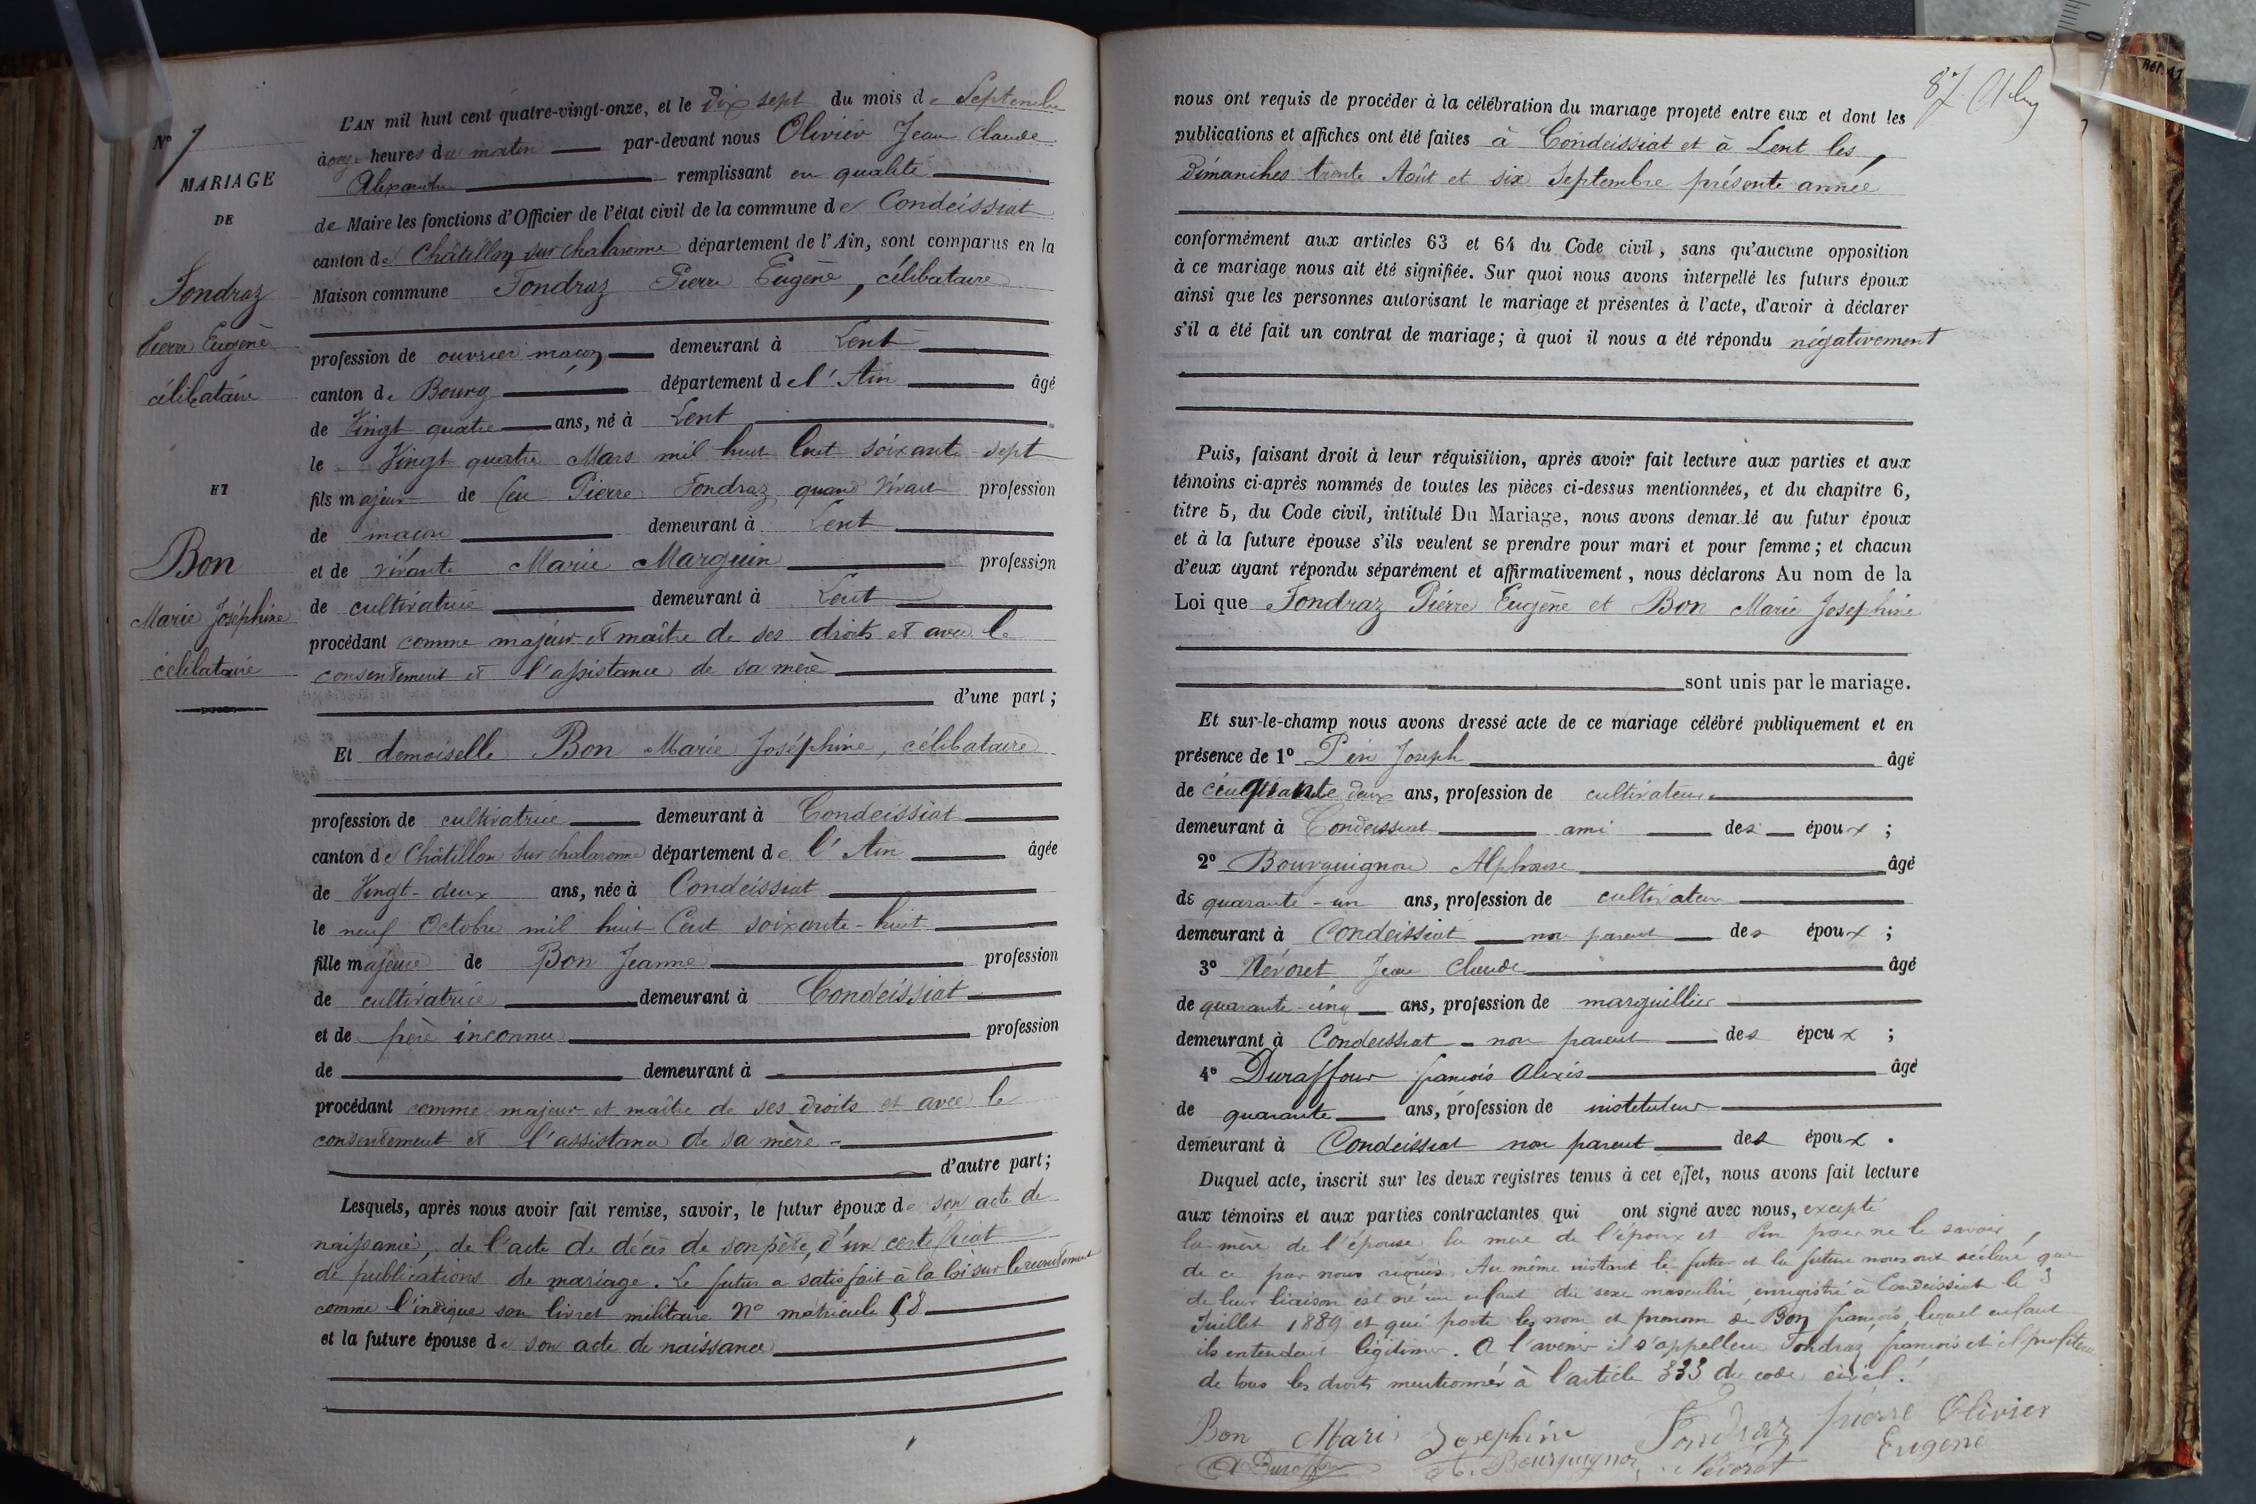 N° 7
MARIAGE
DE
Fondraz
Pierre Eugène
célibataire
ET
Bon
Marie Joséphine
célibataire
L'AN mil huit cent quatre-vingt-onze, et le Dix sept du mois de Septembre
à onze heures du matin par-devant nous Olivier Jean Claude
Alexandre remplissant en qualité
de Maire les fonctions d'Officier de l'état civil de la commune de Condeissiat
canton de Châtillon sur chalaronne département de l'Ain, sont comparus en la
Maison commune Fondraz Pierre Eugène, célibataire
profession de ouvrier maçon demeurant à Lent
canton de Bourg département de l'Ain âgé
de Vingt quatre ans, né à Lent
le Vingt quatre Mars mil huit Cent soixante-sept
fils majeur de feu Pierre Fondraz quand vivait profession
de maçon demeurant à Lent
et de vivante Marie Marguin profession
de cultivatrice demeurant à Lent
procédant comme majeur et maître de ses droits et avec le
consentement et l'assistance de sa mère
d'une part;
Et demoiselle Bon Marie Joséphine, célibataire
profession de cultivatrice demeurant à Condeissiat
canton de Châtillon sur chalaronne département de l'Ain âgée
de Vingt-deux ans, née à Condeissiat
le neuf Octobre mil huit Cent soixante-huit
fille majeure de Bon Jeanne profession
de cultivatrice demeurant à Condeissiat
et de père inconnu profession
de demeurant à
procédant comme majeur et maître de ses droits et avec le
consentement et l'assistance de sa mère
d'autre part;
Lesquels, après nous avoir fait remise, savoir, le futur époux de son acte de
naissance, de l'acte de décès de son père, d'un certificat
de publications de mariage. Le futur a satisfait à la loi sur le recrutement
comme l'indique son livret militaire N° matricule 68
et la future épouse de son acte de naissance
87
nous ont requis de procéder à la célébration du mariage projeté entre eux et dont les
publications et affiches ont été faites à Condeissiat et à Lent les
Dimanches trente Août et six Septembre présente année
conformément aux articles 63 et 64 du Code civil, sans qu'aucune opposition
à ce mariage nous ait été signifiée. Sur quoi nous avons interpellé les futurs époux
ainsi que les personnes autorisant le mariage et présentes à l'acte, d'avoir à déclarer
s'il a été fait un contrat de mariage; à quoi il nous a été répondu négativement
Puis, faisant droit à leur réquisition, après avoir fait lecture aux parties et aux
témoins ci-après nommés de toutes les pièces ci-dessus mentionnées, et du chapitre 6,
titre 5, du Code civil, intitulé Du Mariage, nous avons demandé au futur époux
et à la future épouse s'ils veulent se prendre pour mari et pour femme; et chacun
d'eux ayant répondu séparément et affirmativement, nous déclarons Au nom de la
Loi que Fondraz Pierre Eugène et Bon Marie Josephine
sont unis par le mariage.
Et sur-le-champ nous avons dressé acte de ce mariage célébré publiquement et en
présence de 1° Pin Joseph âgé
de cinquante deux ans, profession de cultivateur
demeurant à Condeissiat ami des époux;
2° Bourguignon Alphonse âgé
de quarante-un ans, profession de cultivateur
demeurant à Condeissiat non parent des époux;
3° Névoret Jean Claude âgé
de quarante-cinq ans, profession de marguillier
demeurant à Condeissiat non parent des époux;
4° Duraffour françois Alexis âgé
de quarante ans, profession de instituteur
demeurant à Condeissiat non parent des époux.
Duquel acte, inscrit sur les deux registres tenus à cet effet, nous avons fait lecture
aux témoins et aux parties contractantes qui ont signé avec nous, excepté
la mère de l'épouse la mère de l'époux et Pin pour ne le savoir,
de ce par nous requis. Au même instant le futur et la future nous ont déclaré que
de leur liaison est né un enfant du sexe masculin enregistré à Condeissiat le 3
Juillet 1889 et qui porte les nom et prénom de Bon françois, lequel enfant
ils entendent légitimer. A l'avenir il s'appellera Fondraz françois et il profitera
de tous les droits mentionnés à l'article 333 du code civil.
Bon Marie Josephine Fondraz pierre Olivier
Eugene
A Duraffour A. Bourguignon Névoret